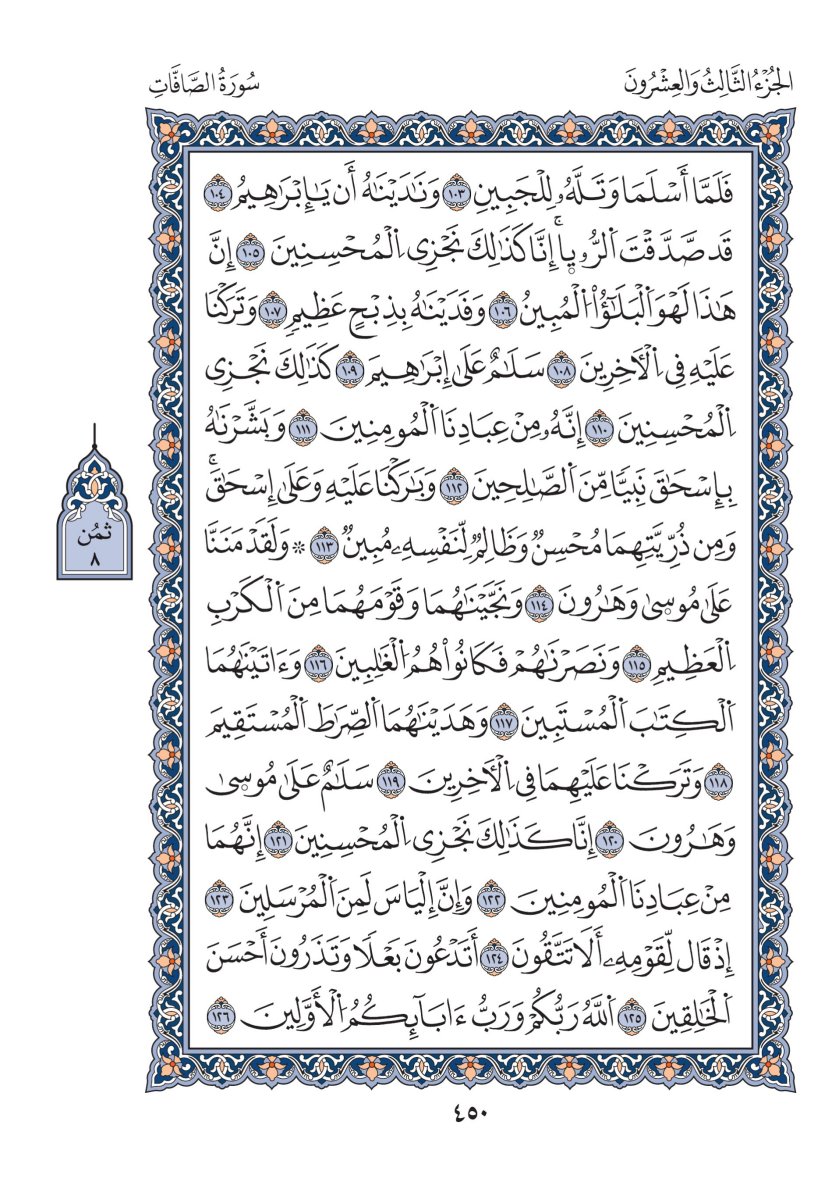 الجُزْءُ الثَّالِثُ وَالعِشْرُونَ
سُورَةُ الصَّافَّاتِ
فَلَمَّا أَسْلَمَا وَتَلَّهُۥ لِلْجَبِينِ ١٠٣ وَنَٰدَيْنَٰهُ أَن يَٰٓإِبْرَٰهِيمُ ١٠٤
قَد صَّدَّقْتَ اَلرُّءْي۪ا إِنَّا كَذَٰلِكَ نَجْزِى اِلْمُحْسِنِينَ ١٠٥ إِنَّ
هَٰذَا لَهْوَ اَلْبَلَٰٓؤُاْ اُلْمُبِينُ ١٠٦ وَفَدَيْنَٰهُ بِذِبْحٍ عَظِيمٍ ١٠٧ وَتَرَكْنَا
عَلَيْهِ فِى اِلْأٓخِرِينَ ١٠٨ سَلَٰمٌ عَلَىٰٓ إِبْرَٰهِيمَ ١٠٩ كَذَٰلِكَ نَجْزِى
اِلْمُحْسِنِينَ ١١٠ إِنَّهُۥ مِنْ عِبَادِنَا اَلْمُومِنِينَ ١١١ وَبَشَّرْنَٰهُ
بِإِسْحَٰقَ نَبِيّٗا مِّنَ اَلصَّٰلِحِينَ ١١٢ وَبَٰرَكْنَا عَلَيْهِ وَعَلَىٰٓ إِسْحَٰقَ
وَمِن ذُرِّيَّتِهِمَا مُحْسِنٌ وَظَالِمٌ لِّنَفْسِهِۦ مُبِينٌ ١١٣ * وَلَقَدْ مَنَنَّا
عَلَىٰ مُوس۪ىٰ وَهَٰرُونَ ١١٤ وَنَجَّيْنَٰهُمَا وَقَوْمَهُمَا مِنَ اَلْكَرْبِ
اِلْعَظِيمِ ١١٥ وَنَصَرْنَٰهُمْ فَكَانُواْ هُمُ اُلْغَٰلِبِينَ ١١٦ وَءَاتَيْنَٰهُمَا
اَلْكِتَٰبَ اَلْمُسْتَبِينَ ١١٧ وَهَدَيْنَٰهُمَا اَلصِّرَٰطَ اَلْمُسْتَقِيمَ
١١٨ وَتَرَكْنَا عَلَيْهِمَا فِى اِلْأٓخِرِينَ ١١٩ سَلَٰمٌ عَلَىٰ مُوس۪ىٰ
وَهَٰرُونَ ١٢٠ إِنَّا كَذَٰلِكَ نَجْزِى اِلْمُحْسِنِينَ ١٢١ إِنَّهُمَا
مِنْ عِبَادِنَا اَلْمُومِنِينَ ١٢٢ وَإِنَّ إِلْيَاسَ لَمِنَ اَلْمُرْسَلِينَ ١٢٣
إِذ قَّالَ لِّقَوْمِهِۦٓ أَلَا تَتَّقُونَ ١٢٤ أَتَدْعُونَ بَعْلٗا وَتَذَرُونَ أَحْسَنَ
اَلْخَٰلِقِينَ ١٢٥ اَللَّهُ رَبُّكُمْ وَرَبُّ ءَابَآئِكُمُ اُلْأَوَّلِينَ ١٢٦
ثُمُن
٨
٤٥٠